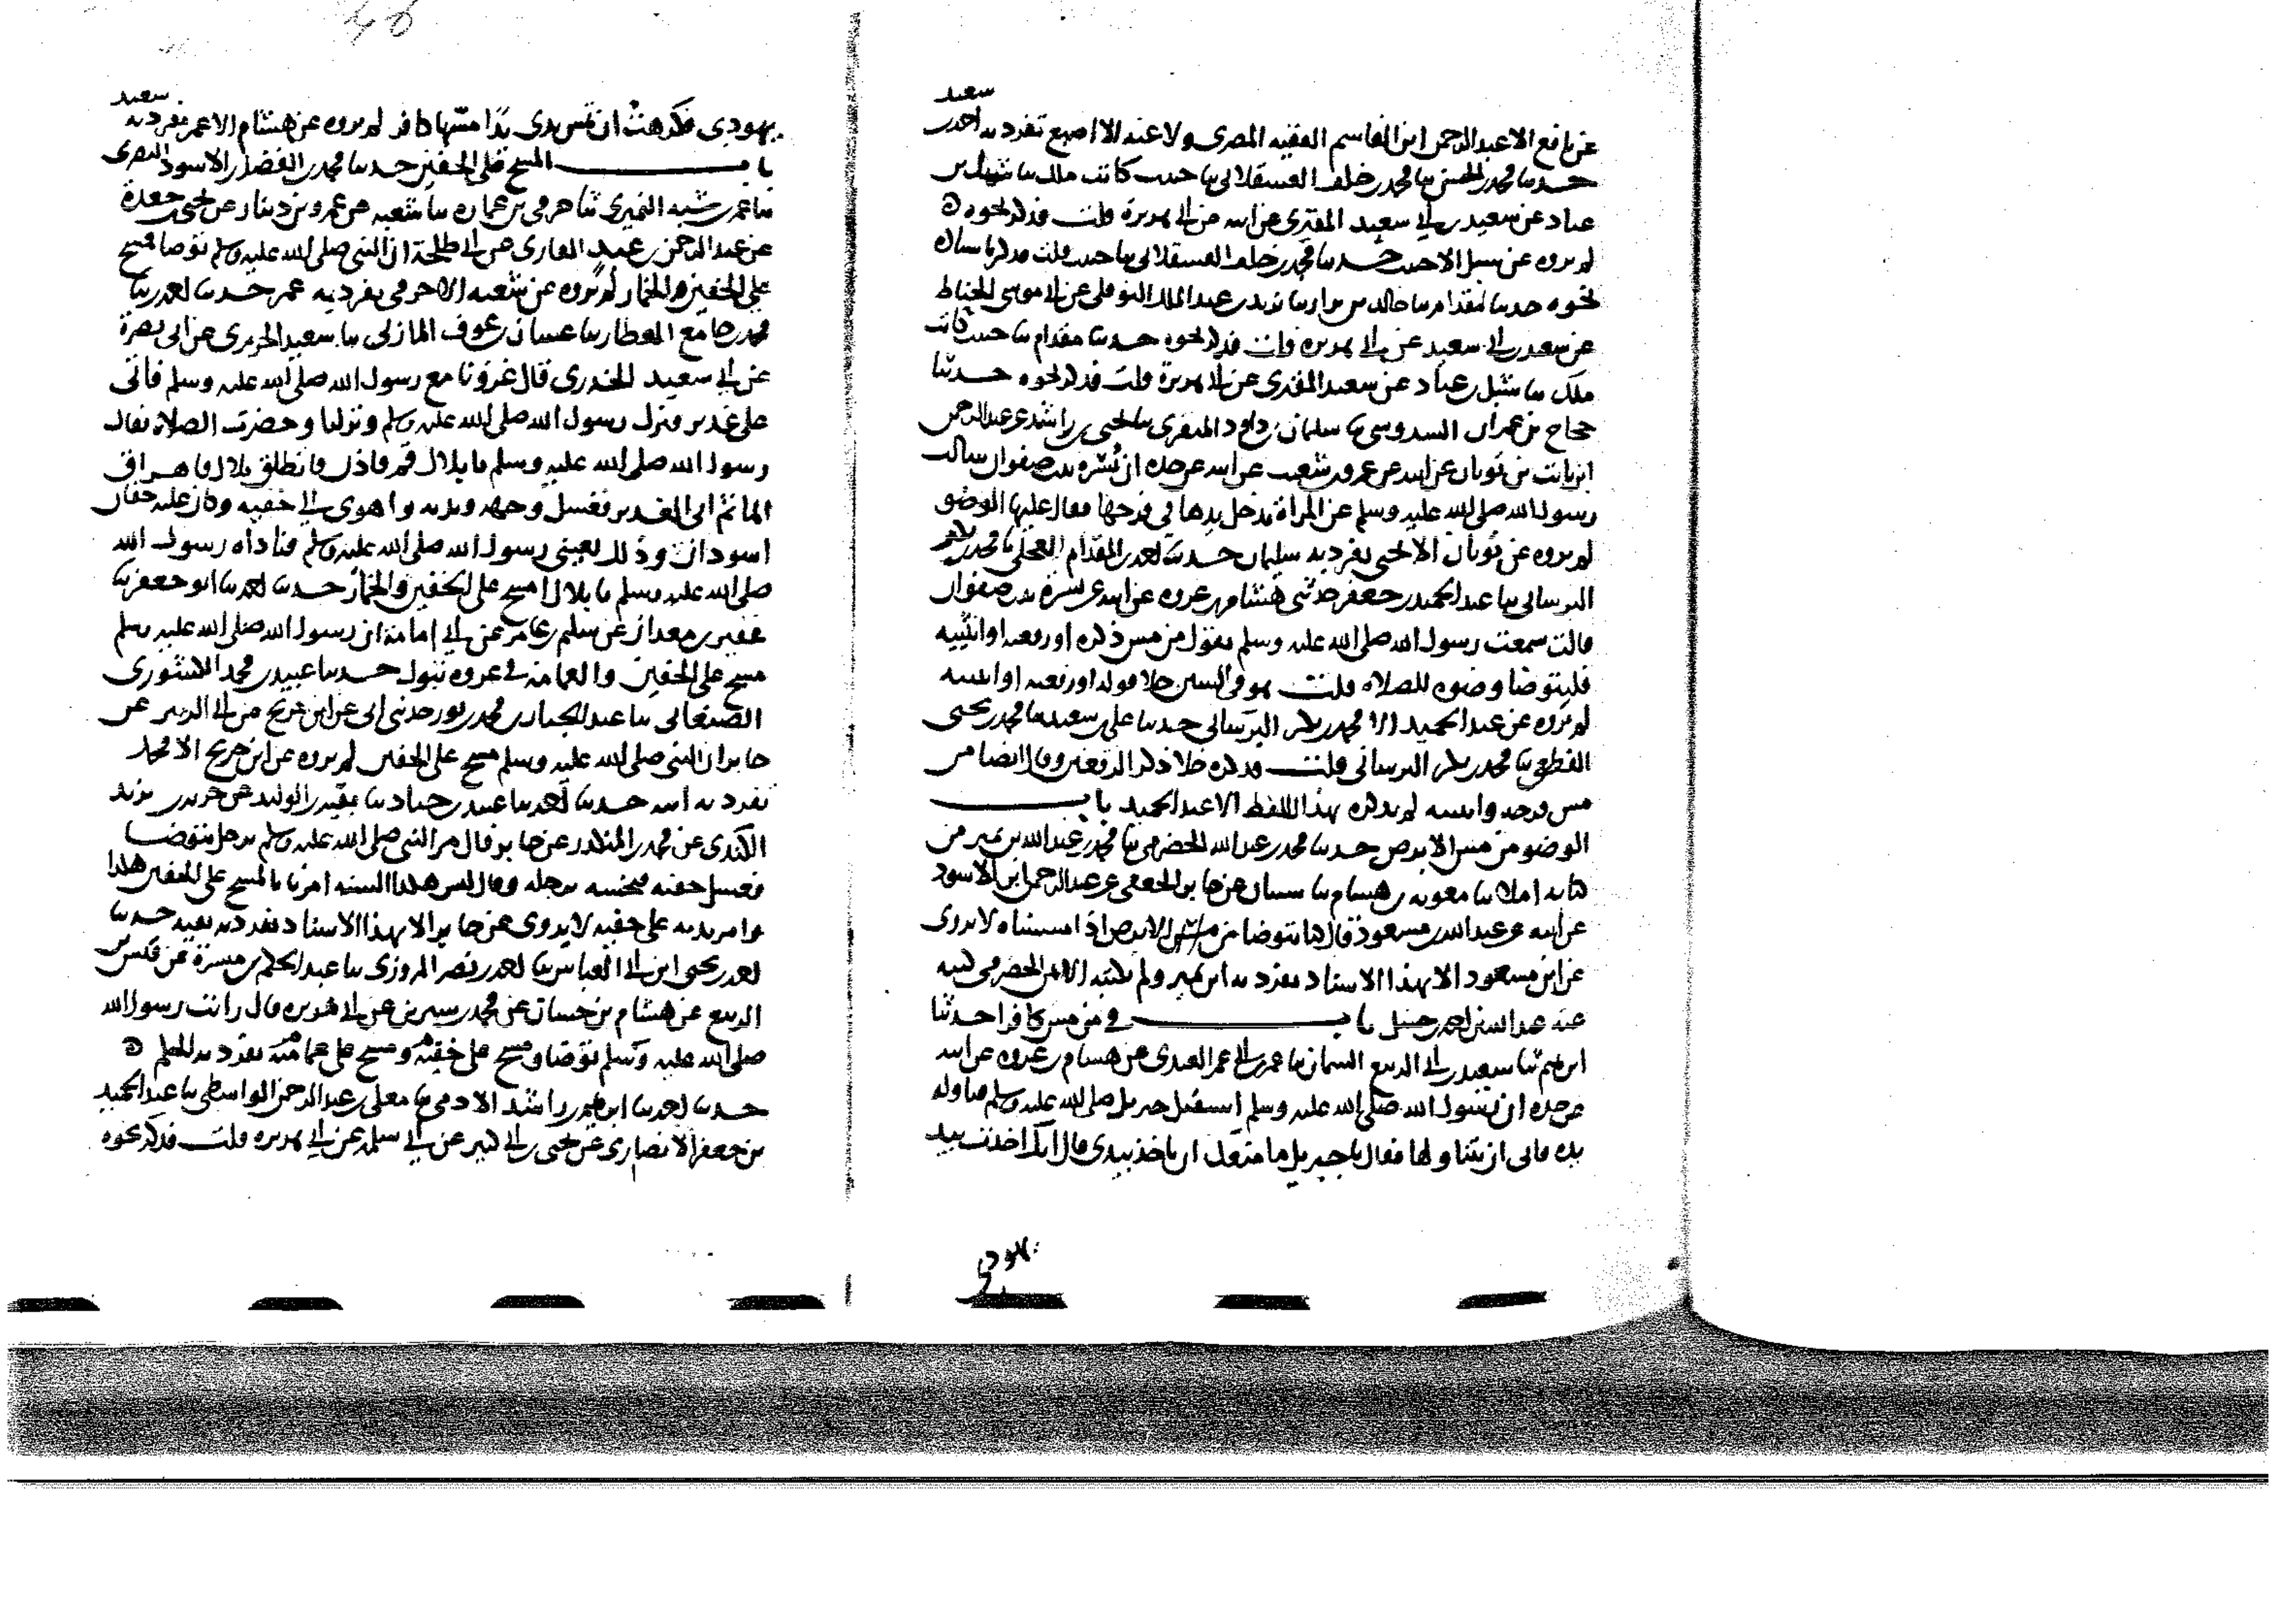 سعيد
عن نافع الا عبد الرحمن ابن القاسم الفقيه المصري ولا عنه الا اصبغ تفرد به احمد بن
حدثنا محمد بن الحسن ثنا محمد بن خلف العسقلاني ثنا حبيب كاتب ملك ثنا شبل بن
عباد عن سعيد بن ابي سعيد المقبري عن ابيه عن ابي هريرة قلت فذكر نحوه
لم يروه عن شبل الا حبيب حدثنا محمد بن خلف العسقلاني ثنا حبيب قلت فذكر باسناده
نحوه حدثنا مقدام ثنا خالد بن نزار ثنا يزيد بن عبد الملك النوفلي عن ابي موسى الحناط
عن سعيد بن ابي سعيد عن ابي هريرة قلت فذكر نحوه حدثنا مقدام ثنا حبيب كاتب
ملك ثنا شبل بن عباد عن سعيد المقبري عن ابي هريرة قلت فذكر نحوه حدثنا
حجاج بن عمران السدوسي ثنا سليمان بن داود المنقري ثنا يحيى بن راشد عن عبد الرحمن
ابن ثابت بن ثوبان عن ابيه عن عمرو بن شعيب عن ابيه عن جده ان بسرة بنت صفوان سالت
رسول الله صلى الله عليه وسلم عن المراة تدخل يدها في فرجها فقال عليها الوضو
لم يروه عن ثوبان الا يحيى تفرد به سليمان حدثنا احمد بن المقدام العجلي ثنا محمد بن بكر
البرساني ثنا عبد الحميد بن جعفر حدثني هشام بن عروه عن ابيه عن بسرة بنت صفوان
قالت سمعت رسول الله صلى الله عليه وسلم يقول من مس ذكره او رفغه او انثييه
فليتوضا وضوه للصلاه قلت هو في السنن خلا قوله او رفغه او انثييه
لم يروه عن عبد الحميد الا محمد بن بكر البرساني حدثنا علي بن سعيد ثنا محمد بن يحيى
القطعي ثنا محمد بن بكر البرساني قلت فذكره خلا ذكر الرفغين وقال ايضا من
مس فرجه وانثييه لم يذكره بهذا اللفظ الا عبد الحميد باب
الوضو من مس الابرص حدثنا محمد بن عبد الله الحضرمي ثنا محمد بن عبد الله بن نمير من
كتابه املا ثنا معوية بن هشام ثنا سفيان عن جابر الجعفي عن عبد الرحمن ابن الاسود
عن ابيه عن عبد الله بن مسعود قال كنا نتوضا من مس الابرص اذا مسسناه لا يروى
عن ابن مسعود الا بهذا الاسناد تفرد به ابن نمير ولم نكتبه الا عن الحضرمي كتبه
عنه عبد الله بن احمد بن حنبل باب في من مس كافرا حدثنا
ابرهيم ثنا سعيد بن ابي الربيع السمان ثنا عمر بن ابي عمر العبدي عن هشام بن عروه عن ابيه
عن جده ان رسول الله صلى الله عليه وسلم استقبل جبريل صلى الله عليه وسلم فناوله
يده فابى ان يتناولها فقال يا جبريل ما منعك ان تاخذ بيدي قال انك اخذت بيد
يهودي
سعيد
يهودي فكرهت ان تمس يدي يدا مستها كافر لم يروه عن هشام الا عمر تفرد به
باب المسح على الخفين حدثنا محمد بن الفضل بن الاسود النضري
ثنا عمر بن شبه النميري ثنا حرمي بن عماره ثنا شعبه عن عمرو بن دينار عن يحيى بن جعدة
عن عبد الرحمن بن عبد القاري عن ابي طلحة ان النبي صلى الله عليه وسلم توضا فمسح
على الخفين والخمار لم يروه عن شعبه الا حرمي تفرد به عمر حدثنا احمد ثنا
محمد بن جامع العطار ثنا غسان بن عوف المازني ثنا سعيد الجريري عن ابي نضرة
عن ابي سعيد الخدري قال غزونا مع رسول الله صلى الله عليه وسلم فاتى
على غدير فنزل رسول الله صلى الله عليه وسلم ونزلنا وحضرت الصلاة فقال
رسول الله صلى الله عليه وسلم يا بلال قم فاذن فانطلق بلال فاهراق
الما ثم اتى الغدير فغسل وجهه ويديه واهوى الى خفيه وكان عليه خفان
اسودان وذلك بعيني رسول الله صلى الله عليه وسلم فناداه رسول الله
صلى الله عليه وسلم يا بلال امسح على الخفين والخمار حدثنا احمد ثنا ابو جعفر ثنا
عفير بن معدان عن سليم بن عامر عن ابي امامة ان رسول الله صلى الله عليه وسلم
مسح على الخفين والعمامة في غزوه تبوك حدثنا عبيد بن محمد الكشوري
الصنعاني ثنا عبد الجبار بن محمد بن ثور حدثني ابي عن ابن جريج عن ابي الزبير عن
جابر ان النبي صلى الله عليه وسلم مسح على الخفين لم يروه عن ابن جريج الا محمد
تفرد به ابنه حدثنا احمد ثنا عبيد بن جناد ثنا بقية بن الوليد عن جرير بن يزيد
الكندي عن محمد بن المنكدر عن جابر قال مر النبي صلى الله عليه وسلم برجل يتوضا
فغسل خفيه فنخسه برجله وقال ليس هكذا السنة امرنا بالمسح على الخفين هكذا
وامر يديه على خفيه لا يروى عن جابر الا بهذا الاسناد تفرد به بقية حدثنا
احمد بن يحيى ابن ابي العباس ثنا احمد بن نصر المروزي ثنا عبد الحكم بن ميسرة عن قيس بن
الربيع عن هشام بن حسان عن محمد بن سيرين عن ابي هريره قال رايت رسول الله
صلى الله عليه وسلم توضا ومسح على خفيه ومسح على عمامته تفرد به عبد الحكم
حدثنا احمد ثنا ابرهيم بن راشد الادمي ثنا معلى بن عبد الرحمن الواسطي ثنا عبد الحميد
بن جعفر الانصاري عن يحيى بن ابي كثير عن ابي سلمة عن ابي هريره قلت فذكر نحوه